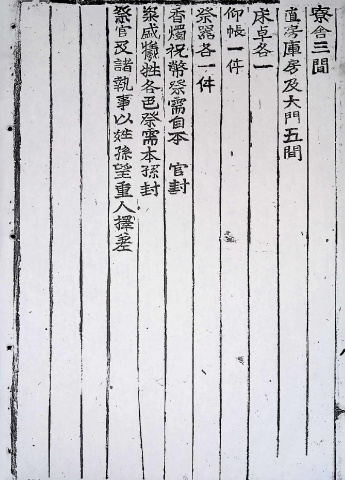 寮舍三間
直房庫房及大門五間
床卓各一
仰帳一件
祭器各一件
香燭祝幣祭需自本 官封
粢盛犧牲各邑祭需本孫封
祭官及諸執事以姓孫望重人擇差